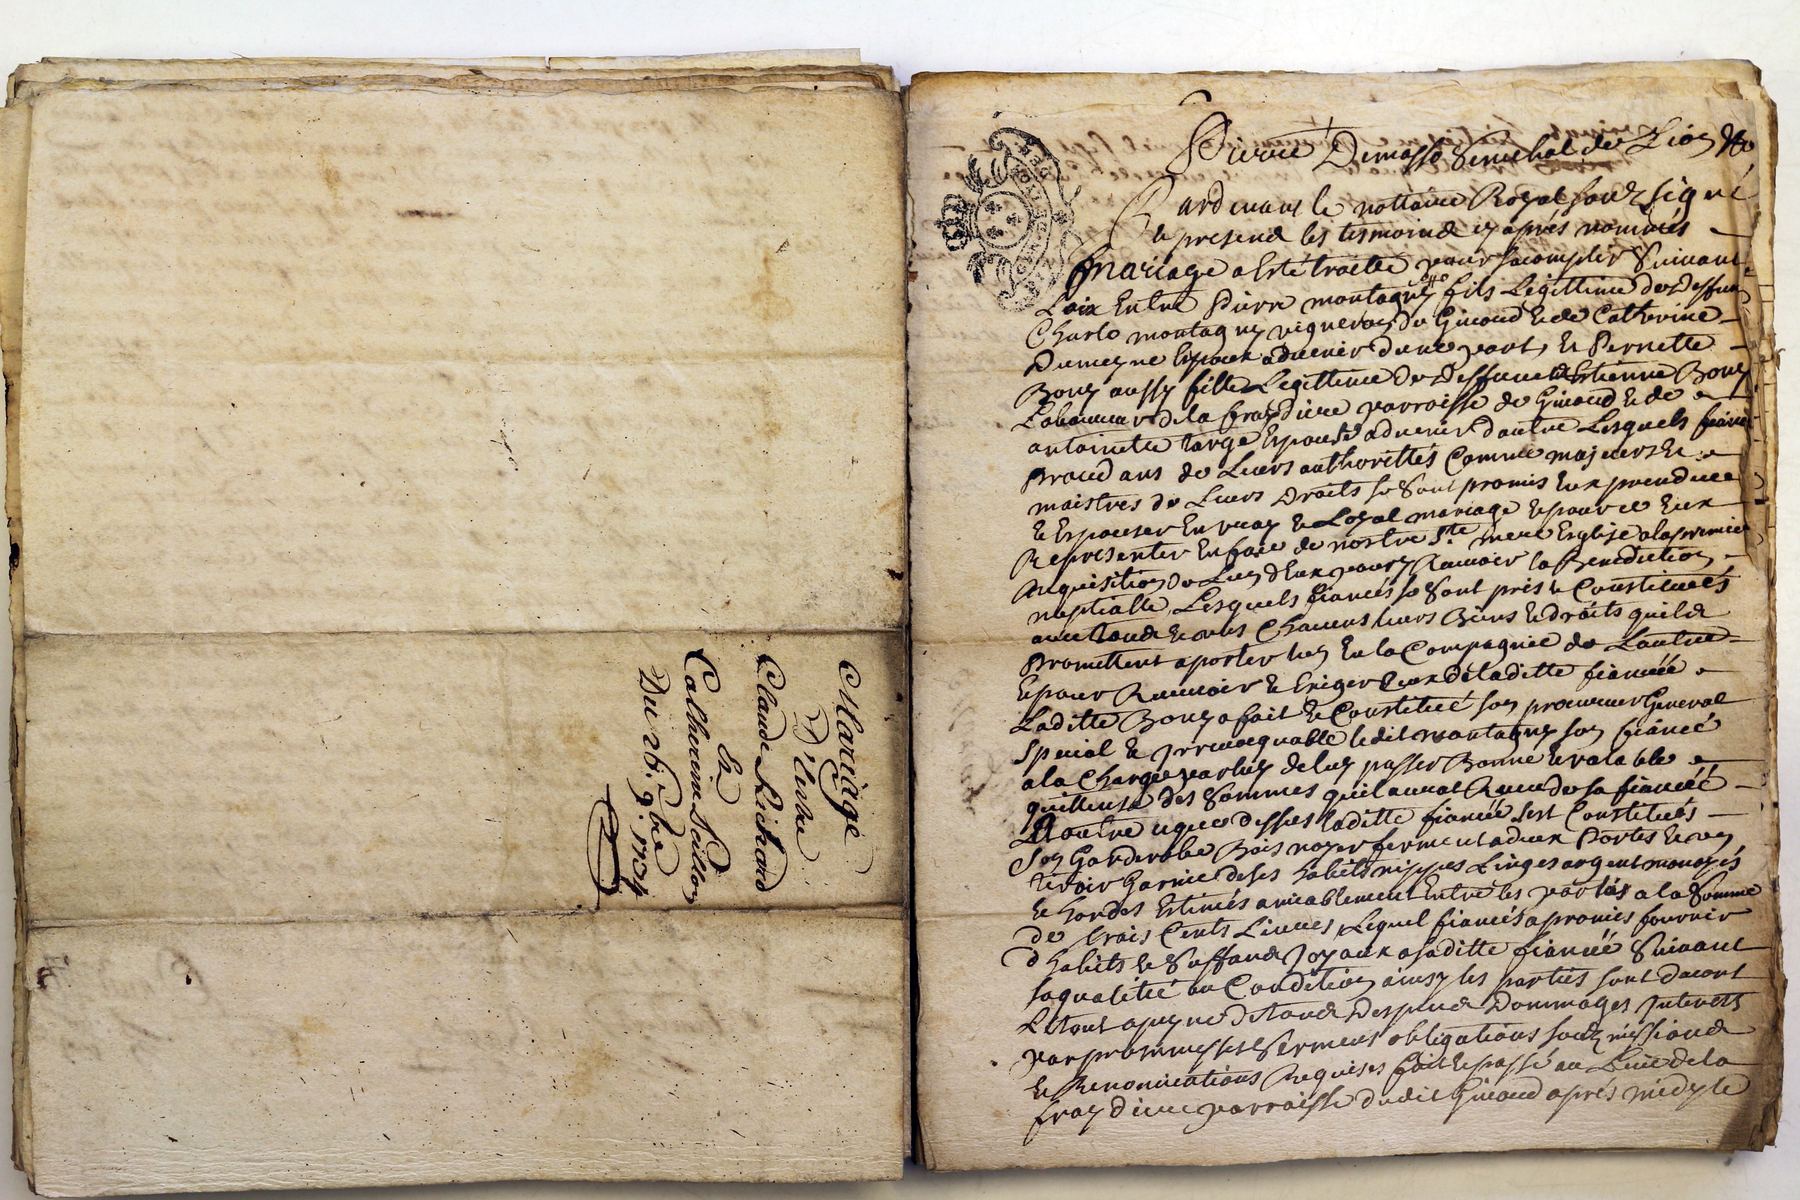 Mariage
D'Entre
Claude Richard
Et
Catherine
Du 26. 9.bre 1704
Pierre Demasso Senechal de Lion &a
Pardevant le nottaire Royal soubz signé
Et presend les tesmoind cy après nommés
Mariage a Esté traitté pour sacomplir Suivant
Loix Entre Pierre montagny fils Legittime de deffun
Charle montagny vigneron de Giraud Et de Catherine
Dumeyne Espoux advenir dune part, Et Pernette
Bony aussy fille Legittime de deffunct Estienne Bony
Laboureur de la parroisse de Giraud Et de
antoinette large Espouse advenir dautre Lesquels
procedans de Leurs authorittés Comme majeurs Et
maistres de Leurs Droits se sont promis Eux prendre
Et Espouser En vray Et Loyal mariage Et pour ce Eux
Representer En face de nostre Ste mere Esglise a la premiere
Requisition de Lun dEux pour y Recevoir la Benediction
nuptialle Lesquels fiancés se sont pris Et Constitués
avec touds Et uns Chacuns leurs Biens Et droits quils
Promettent aporter lun En la Compagnie de Lautre
Et pour Recevoir Et Exiger Ceux de laditte fiancée
Laditte Bony a fait Et Constitué son procureur General
Special Et yrrevocquable ledit montagny son fiancé
a la Charge par luy de luy passer Bonne Et valable
quittence des sommes quil aura Receu de sa fiancée
Et oultre ce que dessus laditte fiancée sest Constituée
son Garderobe Bois noyer fermant a deux Portes Et un
tiroir Garnie de ses habits nippes Linges argent monoyés
Et hordes Estimés amiablement Entre les parties a la somme
de trois Cents Livres, Lequel fiancés a promis fournir
dhabits Et Joyaux a saditte fiancée Suivant
sa qualitté ou Condition ainsy les parties sont dacort
Le tout a peyne de touds Despends Dommages Interests
par promesses serment obligations soubzmissiond
Et Renonciations Requises fait Et passé au Lieu de la
parroisse dudit Giraud après midy le